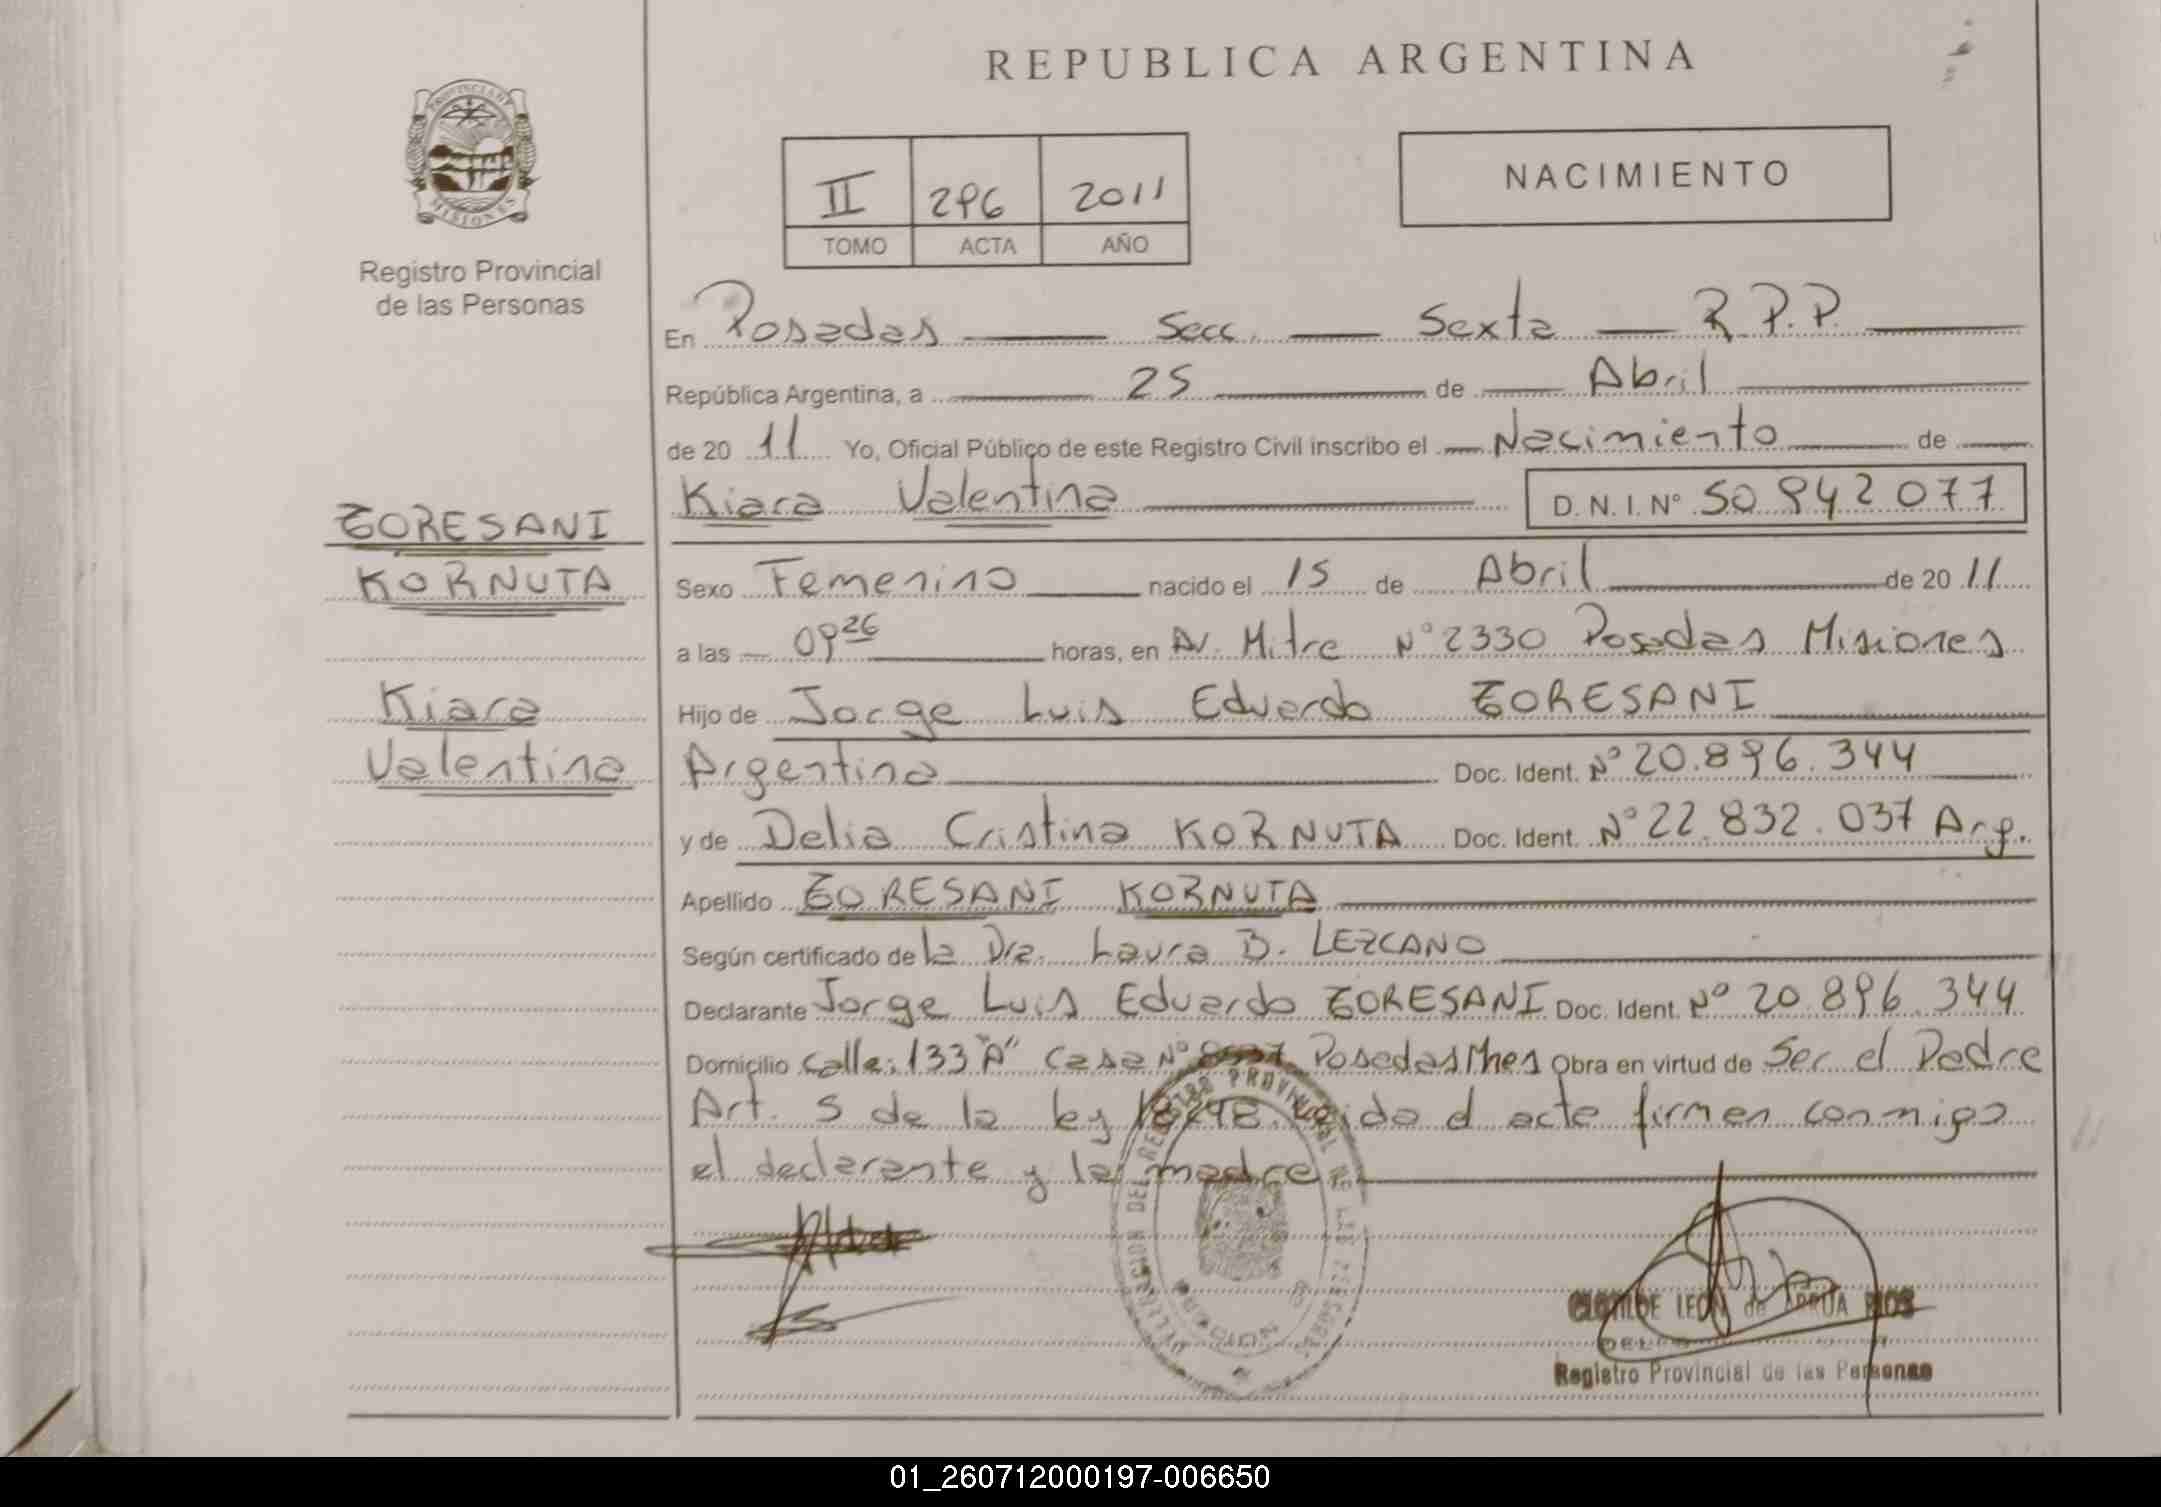 REPUBLICA ARGENTINA
PROVINCIA DE
MISIONES
Registro Provincial
de las Personas
II 296 2011
TOMO ACTA AÑO
NACIMIENTO
En Posadas Secc. Sexta R.P.P.
República Argentina, a 25 de Abril
de 2011 Yo, Oficial Público de este Registro Civil inscribo el Nacimiento de
Kiara Valentina D.N.I.Nº 50.942.077
ZORESANI
KORNUTA
Kiara
Valentina
Sexo Femenino nacido el 15 de Abril de 2011
a las 09 26 horas, en Av. Mitre Nº 2330 Posadas Misiones
Hijo de Jorge Luis Eduardo ZORESANI
Argentina Doc. Ident. Nº 20.896.344
y de Delia Cristina KORNUTA Doc. Ident. Nº 22.832.037 Arg.
Apellido ZORESANI KORNUTA
Según certificado de la Dra. Laura B. LEZCANO
Declarante Jorge Luis Eduardo ZORESANI Doc. Ident. Nº 20.896.344
Domicilio Calle: 133 "A" Casa Nº Posadas Mnes Obra en virtud de Ser el Padre
Art. 5 de la ley 18248. Leida el acta firman conmigo
el declarante y la madre
DELEGACION DEL REGISTRO PROVINCIAL DE LAS PERSONAS
CLOTILDE LEON de APRUA RIOS
Registro Provincial de las Personas
01_260712000197-006650